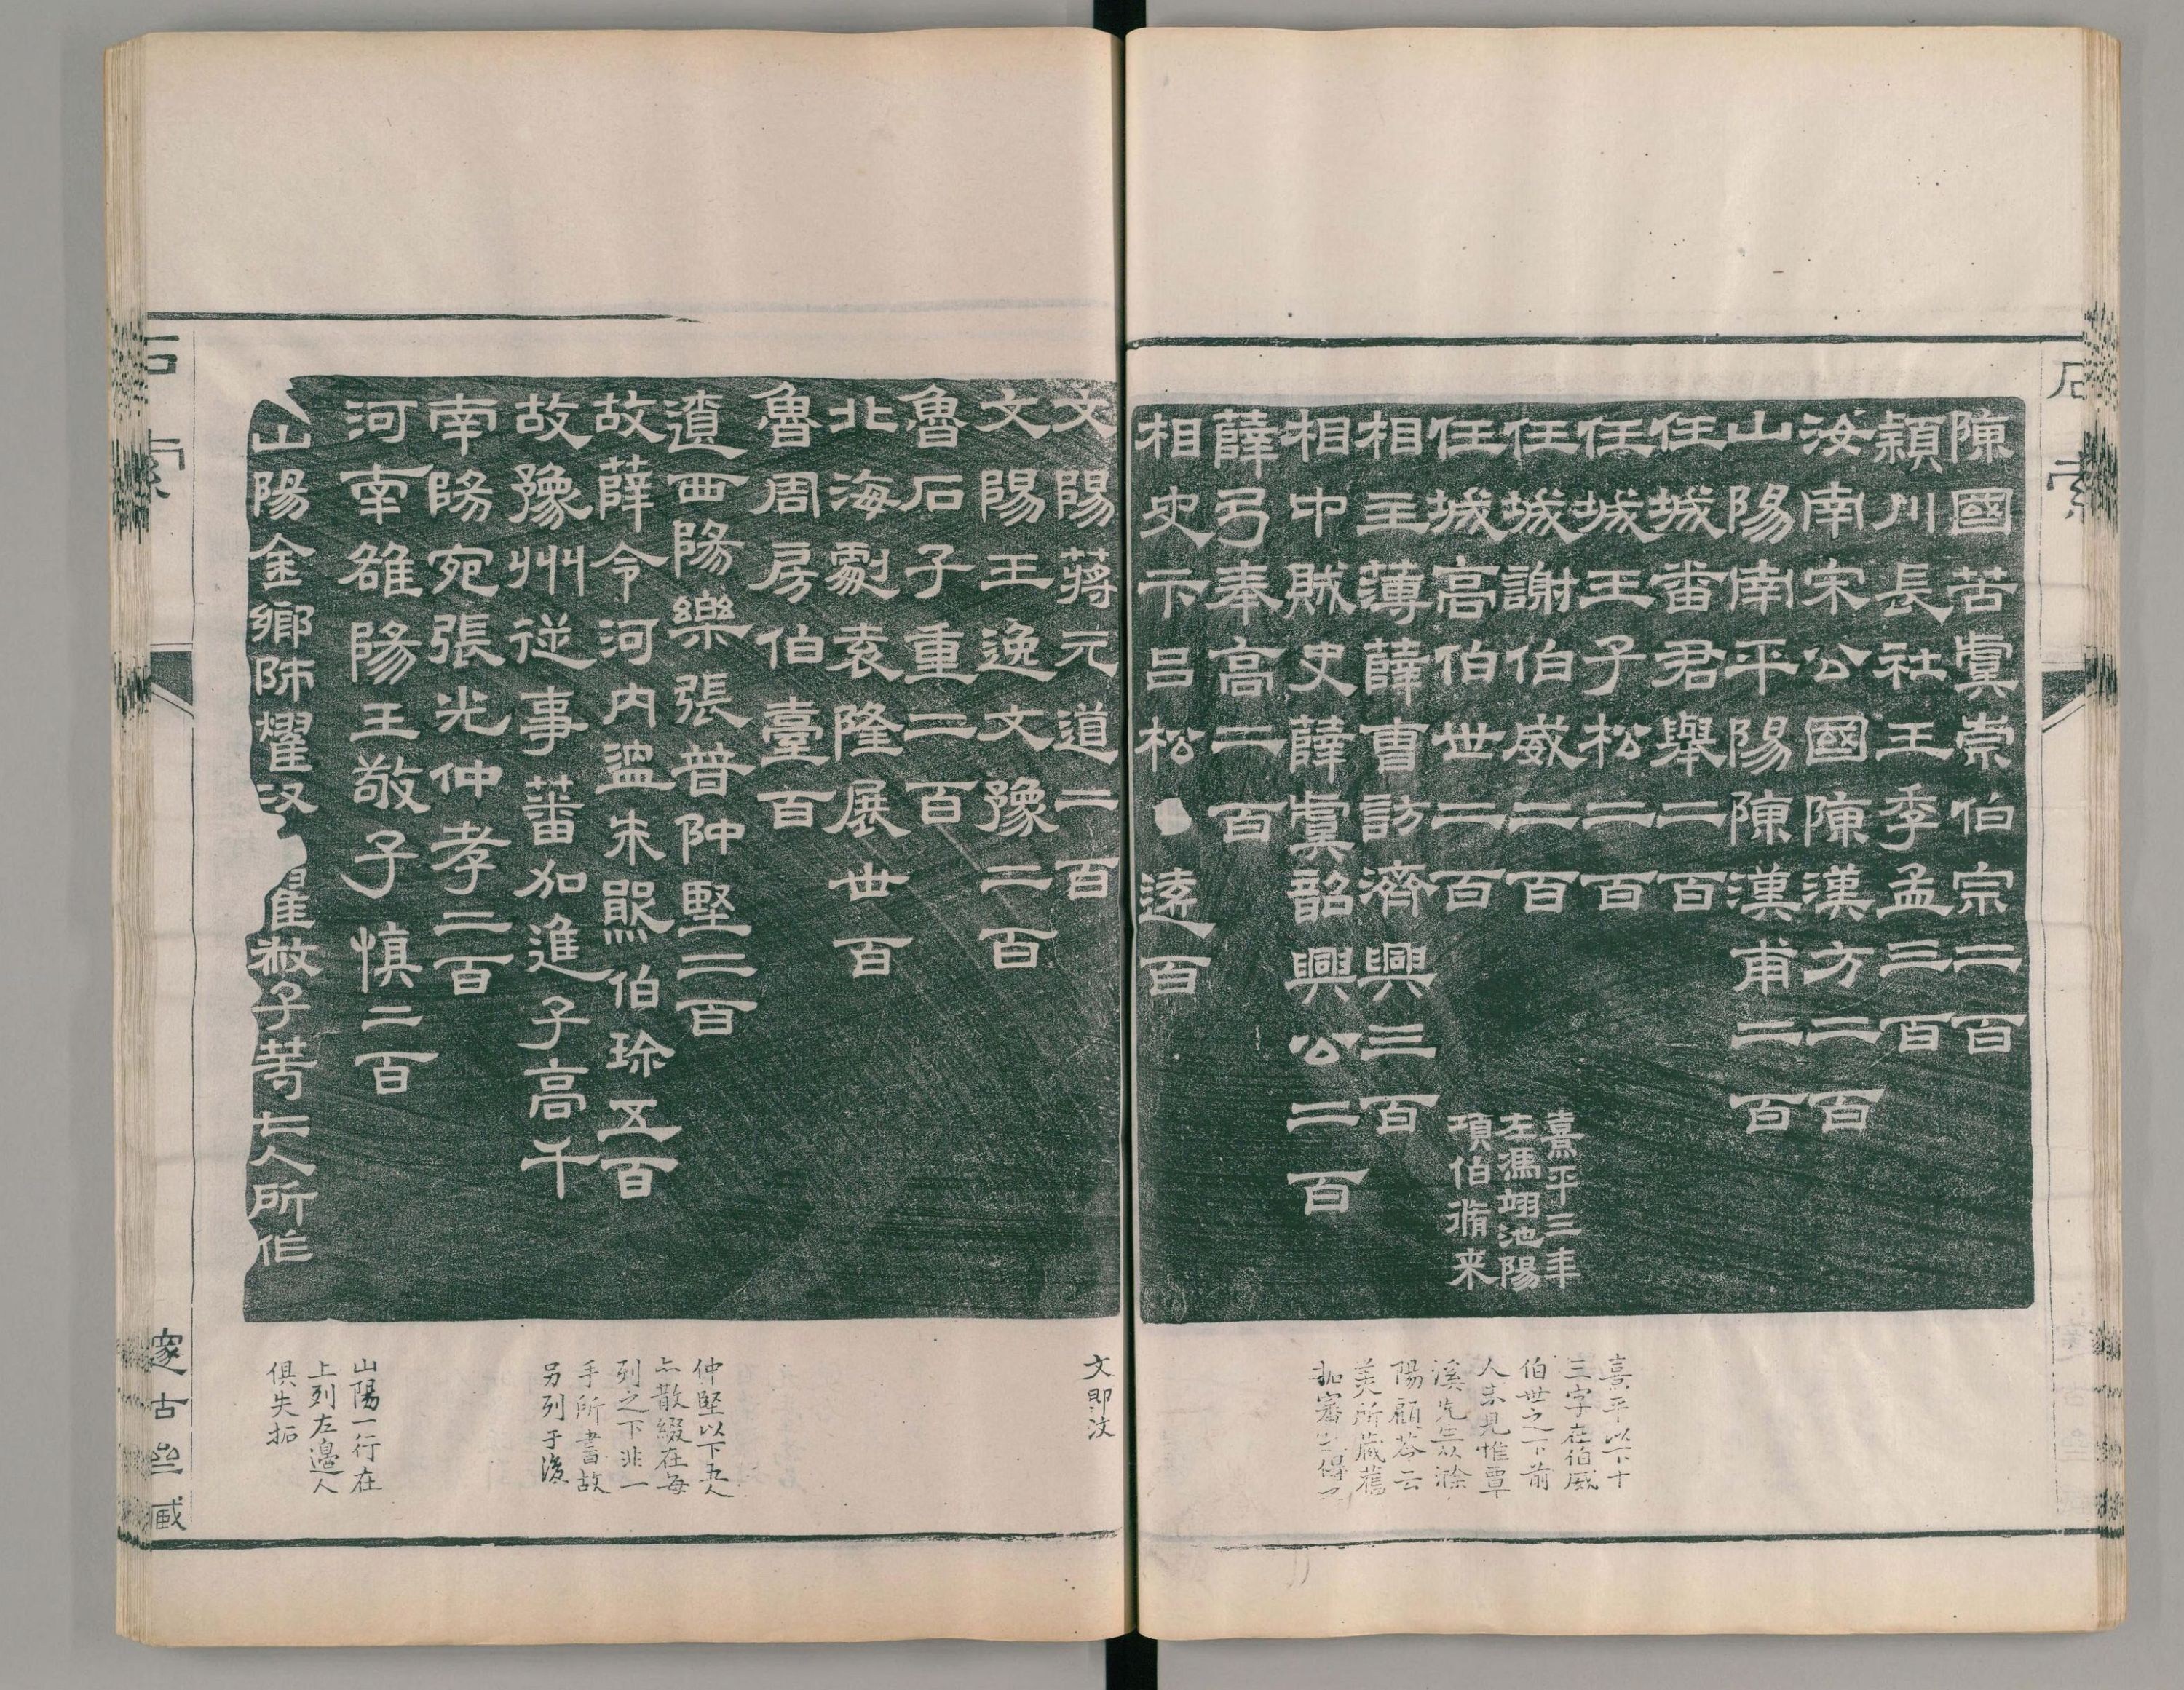 陳國苦虞崇伯宗二百
潁川長社王季孟三百
汝南宋公國陳漢方二百
山陽南平陽陳漢甫二百
任城番君舉二百
任城王子松二百
任城謝伯威二百
任城高伯世二百
熹平三年
左馮翊池陽
項伯脩来
相主薄薛曹訪濟興三百
相中賊史薛虞韶興公二百
薛弓奉高二百
相史卞呂松
遠百
熹平以下十
三字在伯威
伯世之下前
人未見惟覃
溪先生以滁
陽顧苓云
美所蔵舊
拓審出得之
文陽蔣元道二百
文陽王逸文豫二百
魯石子重二百
北海劇袁隆展世百
魯周房伯臺百
遼西陽樂張普仲堅二百
故薛令河内溫朱熙伯珍五百
故豫州從事蕃加進子高千
南陽宛張光仲孝二百
河南雒陽王敬子慎二百
山陽金鄉師燿漢
敝子苛六人所作
文即汶
仲堅以下五人
亦散綴在每
列之下非一
手所書故
另列于後
山陽一行在
上列左邊人
俱失拓
石索
邃古𠫵臧
石索